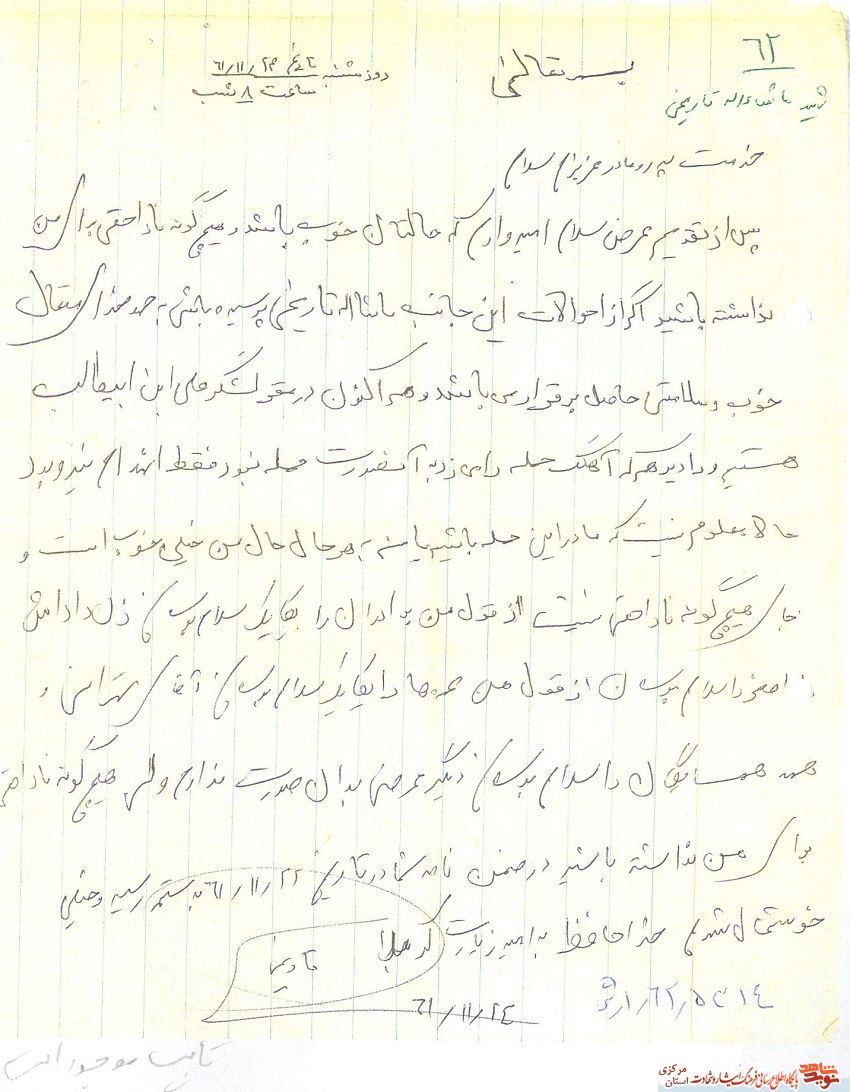 ۶۲
شهید ماشاءاله تاریخی
بسمه تعالی
دوشنبه تاریخ ۶۱/۱۱/۲۴
ساعت ۸ شب
خدمت پدر و مادر عزیزم سلام
پس از تقدیم عرض سلام امیدوارم که حالتان خوب باشد و هیچ گونه ناراحتی برای من
نداشته باشید اگر از احوالات این جانب ماشااله تاریخی پرسیده باشی به حمد خدای متعال
خوب و سلامتی حاصل برقرار می باشد و هم اکنون در مقر لشگر علی ابن ابیطالب
هستیم و رادیو هم که آهنگ حمله را می زد به آنصورت حمله نبود فقط انهدام نیرو بود
حالا معلوم نیست که ما در این حمله باشیم یا نه به هر حال حال من خیلی خوب است و
جای هیچ گونه ناراحتی نیست از قول من برادران را یکایک سلام برسان
اصغر را سلام برسان از قول من عمه ها را یکایک سلام برسان آقای تهرانی و
همه همسایگان را سلام برسان دیگر عرضی بدان صورت ندارم ولی هیچ گونه ناراحتی
برای من نداشته باشید در ضمن نامه شما در تاریخ ۶۱/۱۱/۲۲ به دستم رسید و خیلی
خوشحال شدم خداحافظ به امید زیارت کربلا
تاریخی
۶۱/۱۱/۲۴
تایپ موجود است
نوید شاهد
پایگاه اطلاع رسانی فرهنگ ایثار و شهادت استان مرکزی